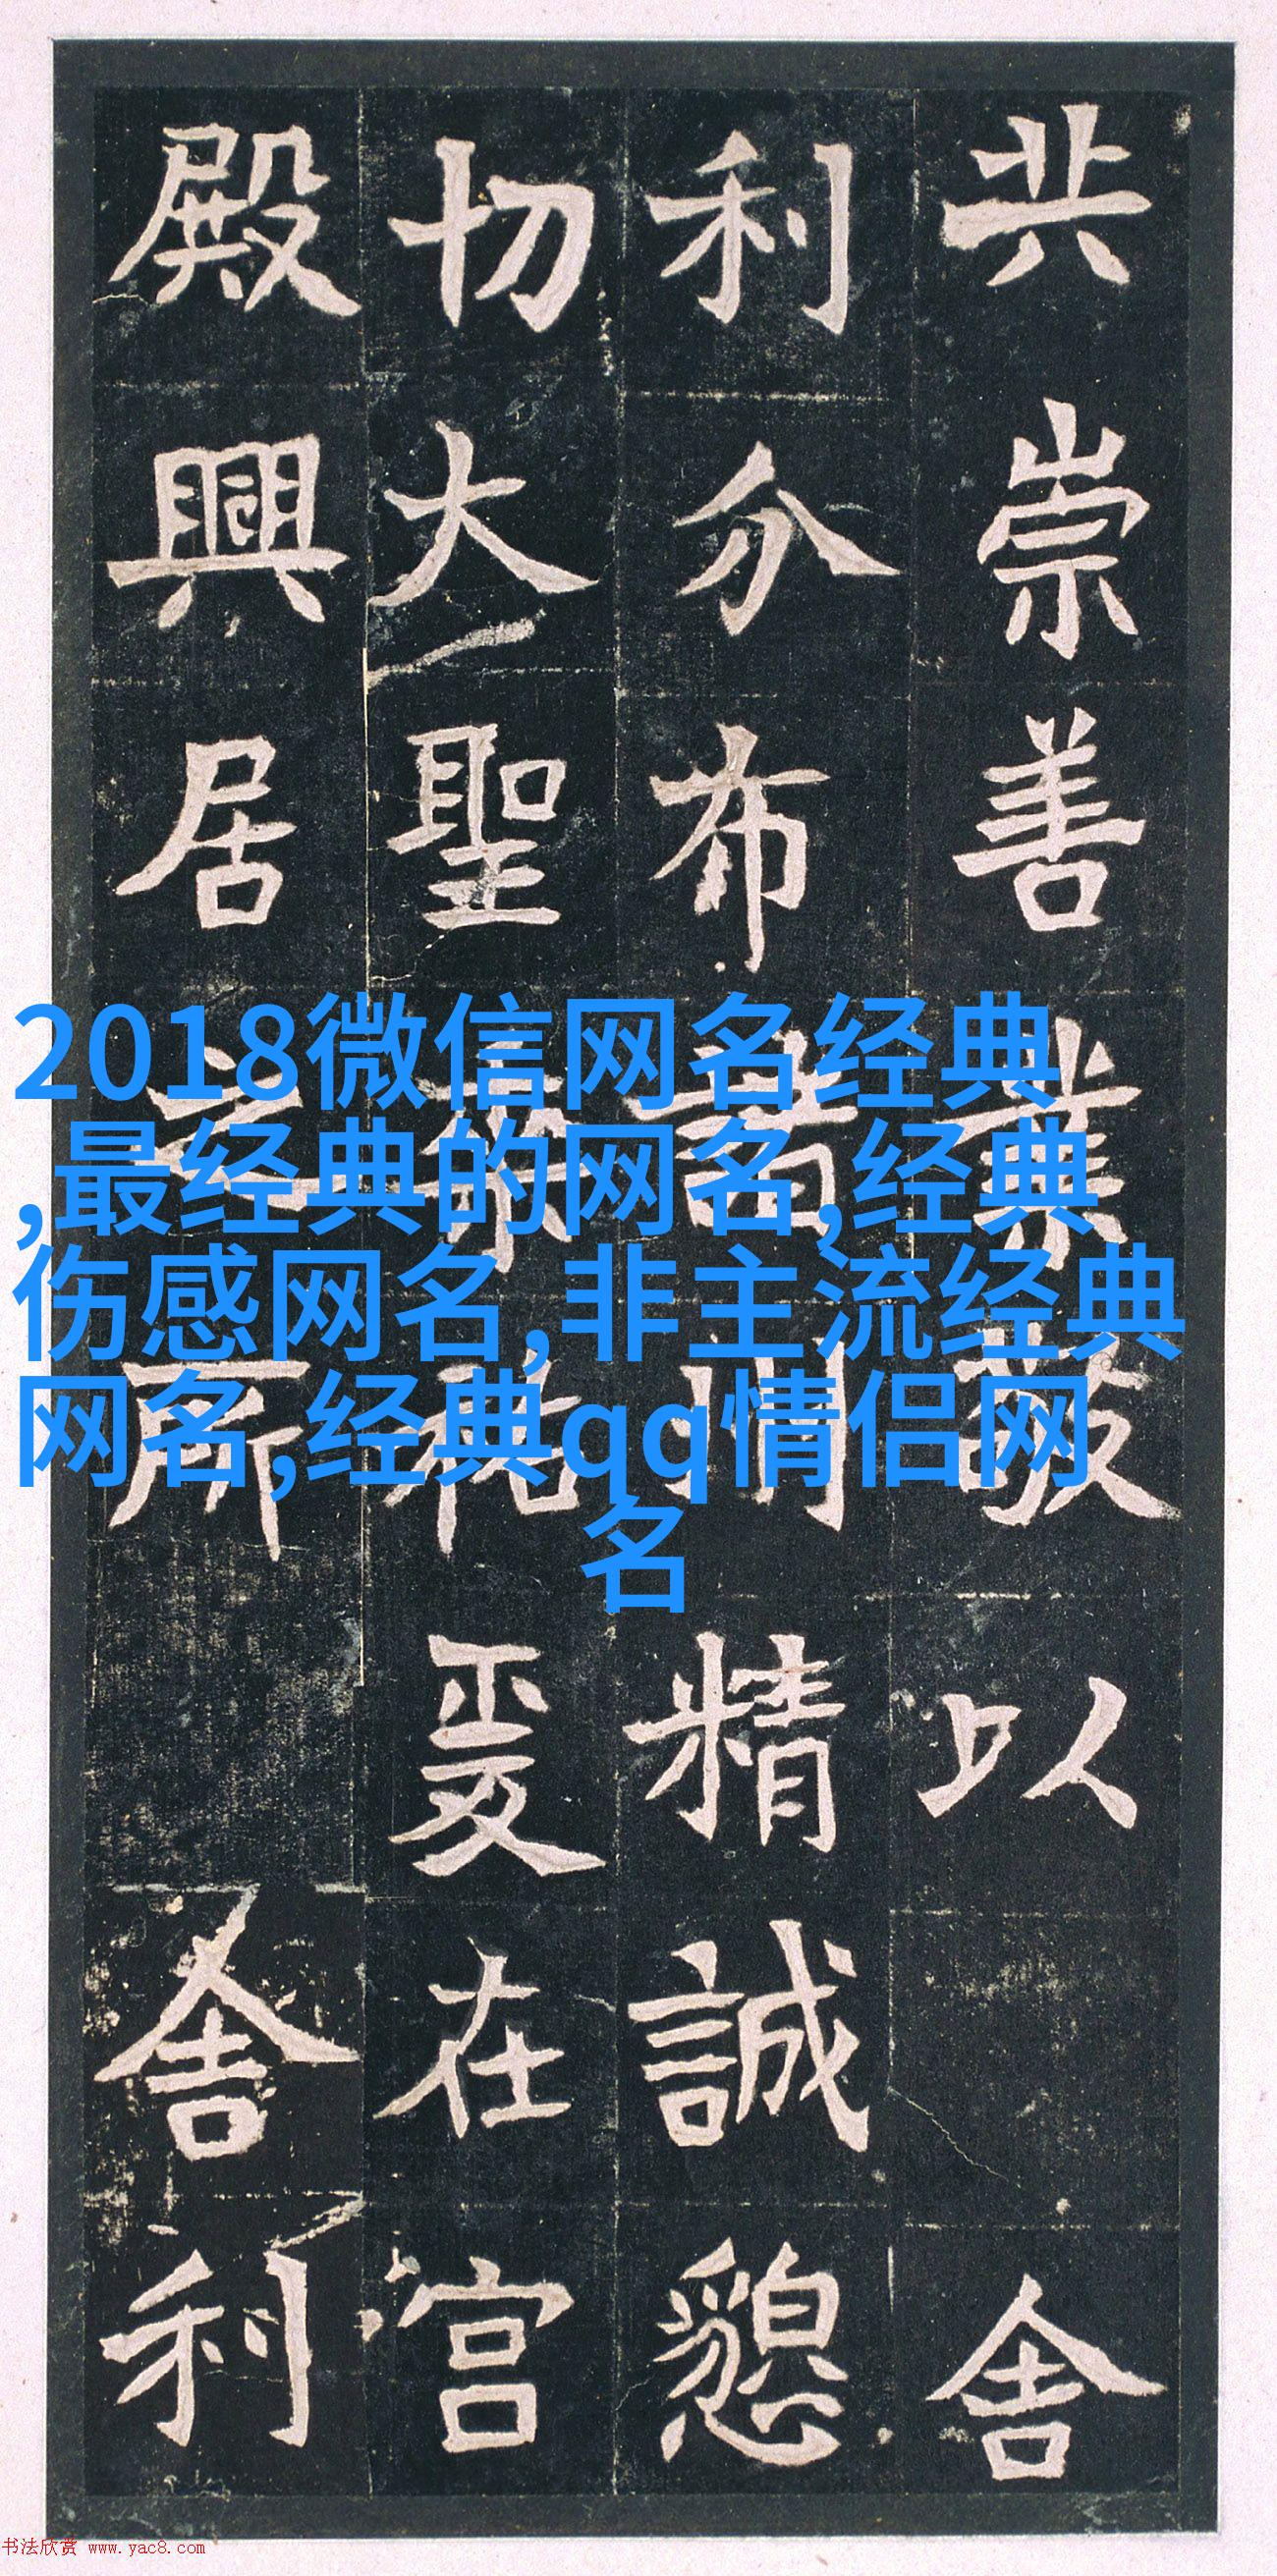 共崇善業敬以舍
利分布諸州精誠懇
切大聖祐爰在宫
殿興居之所舍利
2018微信网名经典
,最经典的网名,经典
伤感网名,非主流经典
网名,经典qq情侣网
名
书法欣赏 www.yac8.com